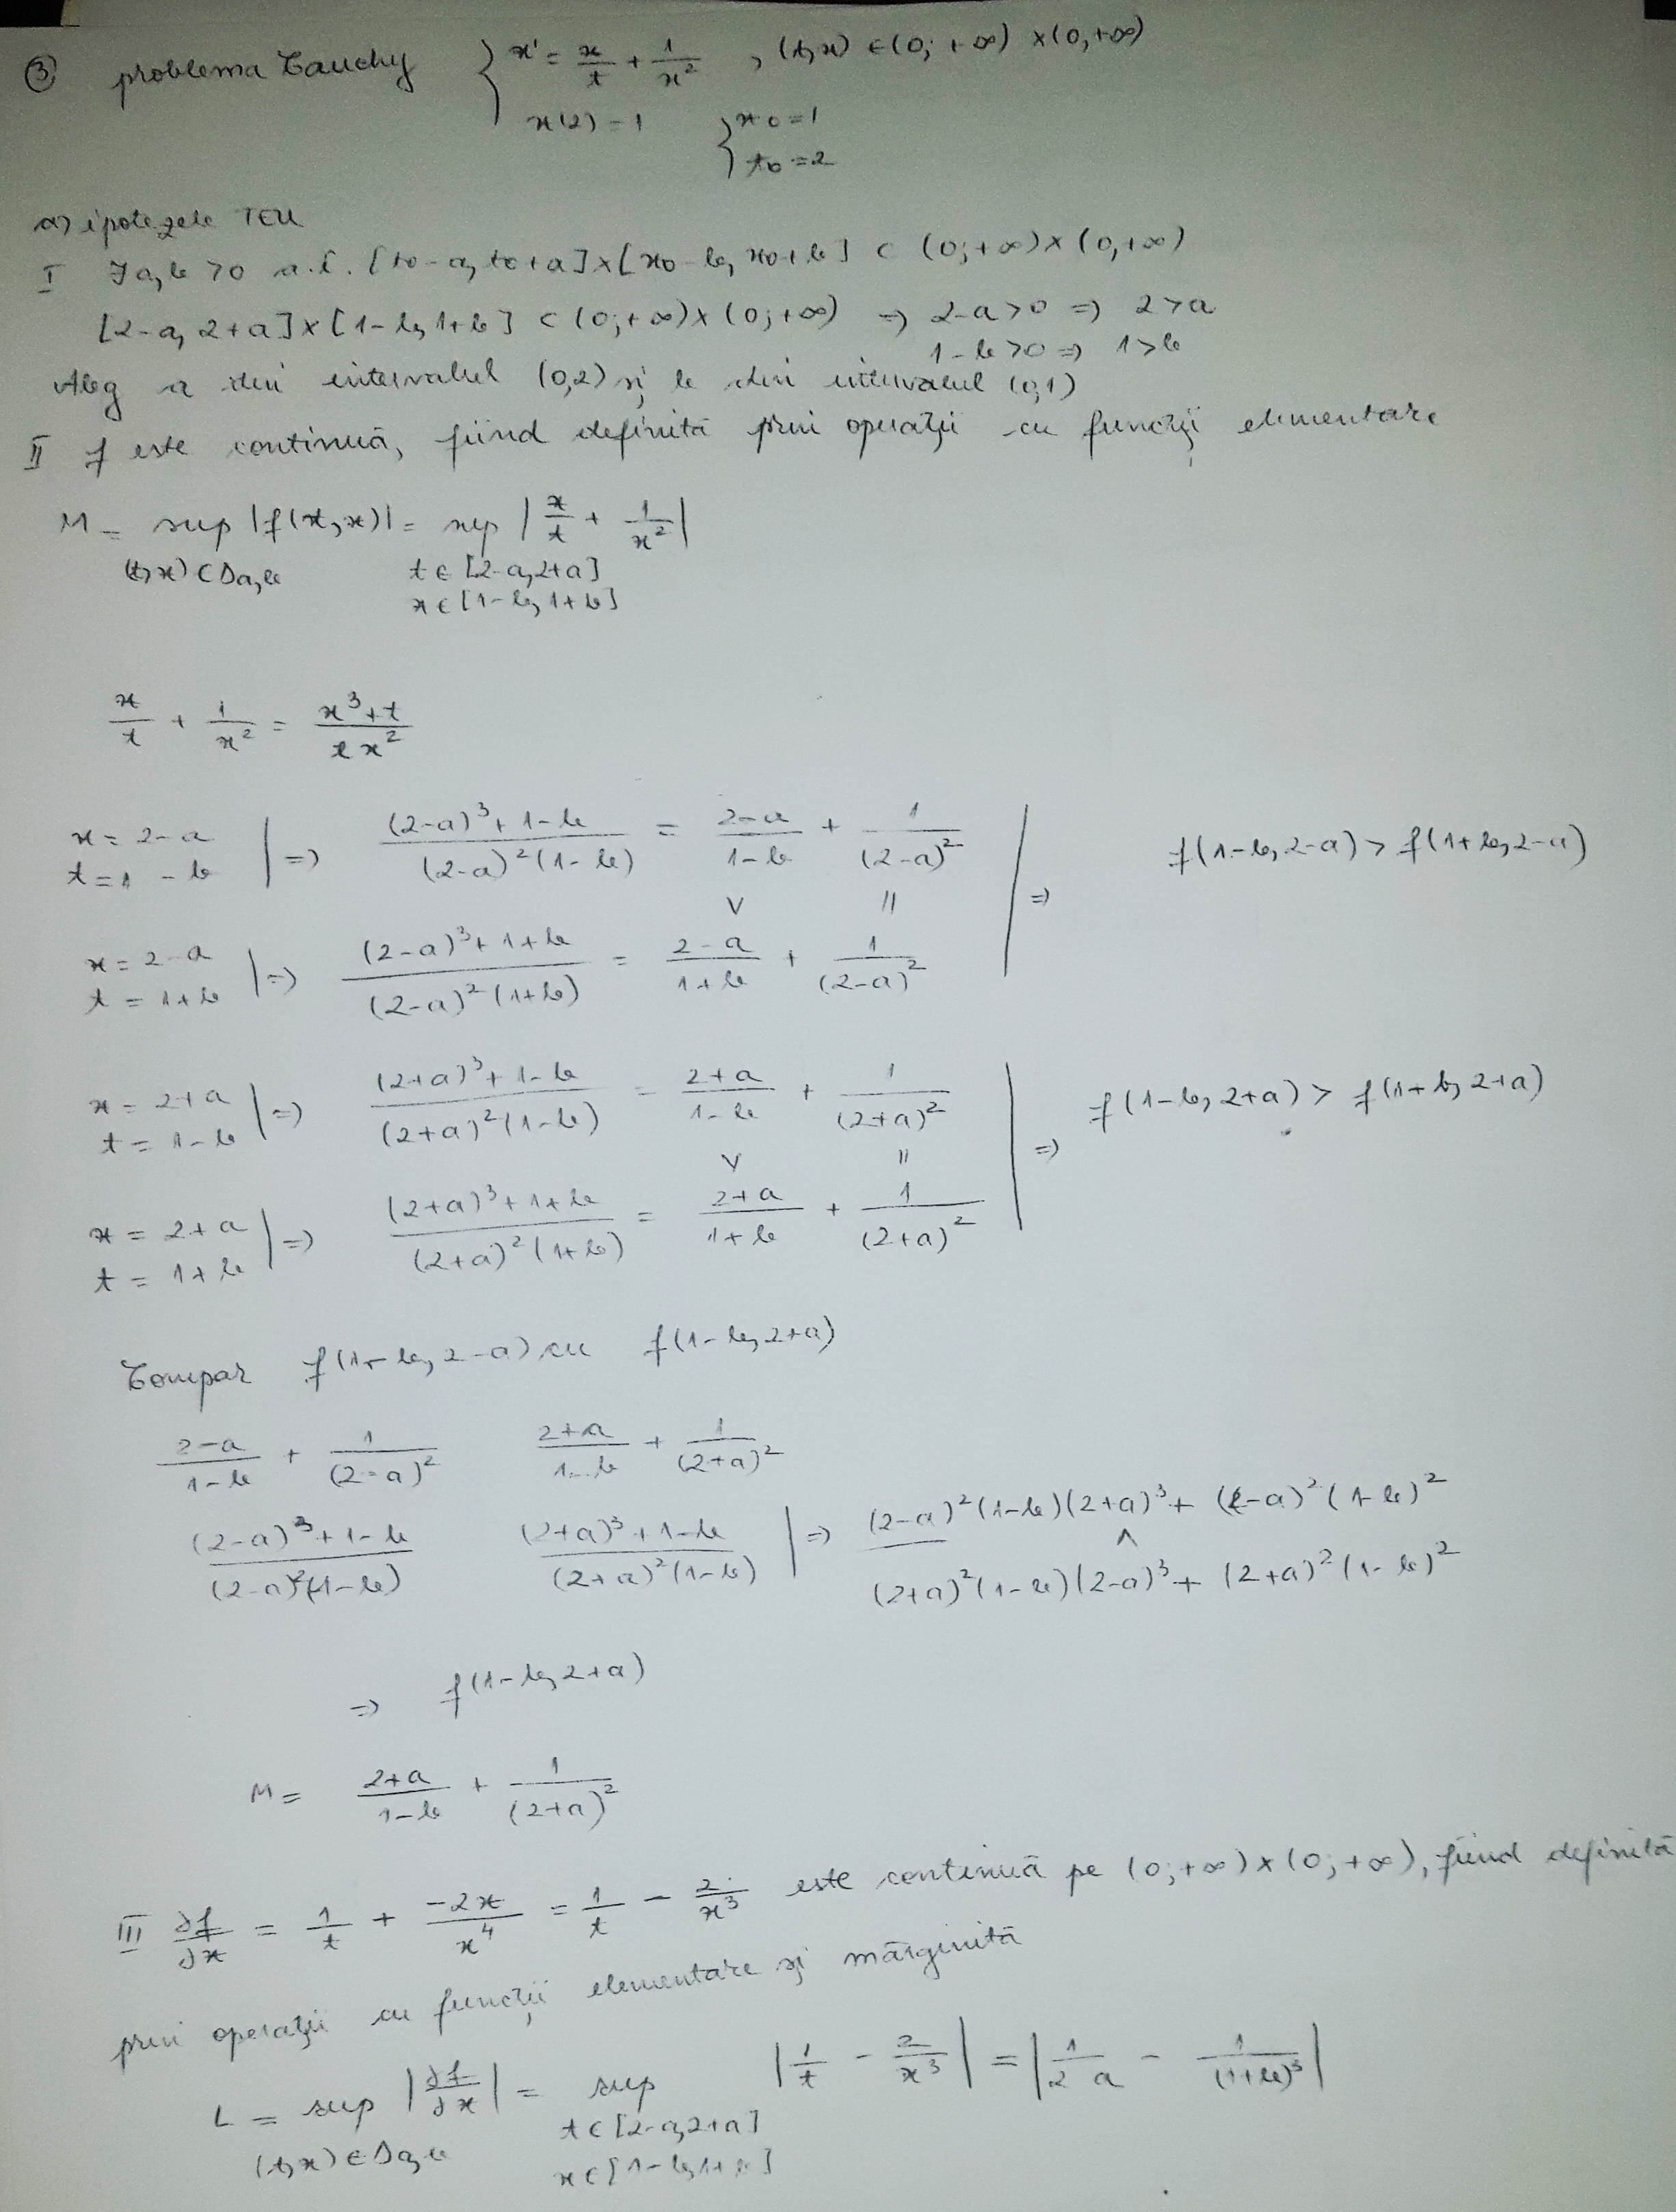 ③ problema Cauchy { x' = x/t + 1/x² , (t,x) ∈ (0; +∞) × (0,+∞)
x(2) = 1 { x0 = 1
t0 = 2
a) ipotezele TEU
I ∃ a,b >0 a.î. [t0-a, t0+a]×[x0-b, x0+b] ⊂ (0;+∞)×(0,+∞)
[2-a, 2+a]×[1-b, 1+b] ⊂ (0;+∞)×(0;+∞) => 2-a>0 => 2>a
1-b>0 => 1>b
Aleg a din intervalul (0,2) și b din intervalul (0,1)
II f este continuă, fiind definită prin operații cu funcții elementare
M = sup |f(t,x)| = sup | x/t + 1/x² |
(t,x) ∈ Δa,b t ∈ [2-a,2+a]
x ∈ [1-b, 1+b]
x/t + 1/x² = (x³+t)/(t x²)
x = 2-a
t = 1-b | => ((2-a)³+1-b)/((2-a)²(1-b)) = (2-a)/(1-b) + 1/(2-a)² | => f(1-b, 2-a) > f(1+b, 2-a)
∨ ||
x = 2-a
t = 1+b | => ((2-a)³+1+b)/((2-a)²(1+b)) = (2-a)/(1+b) + 1/(2-a)²
x = 2+a
t = 1-b | => ((2+a)³+1-b)/((2+a)²(1-b)) = (2+a)/(1-b) + 1/(2+a)² | => f(1-b, 2+a) > f(1+b, 2+a)
∨ ||
x = 2+a
t = 1+b | => ((2+a)³+1+b)/((2+a)²(1+b)) = (2+a)/(1+b) + 1/(2+a)²
Compar f(1-b, 2-a) cu f(1-b, 2+a)
(2-a)/(1-b) + 1/(2-a)² (2+a)/(1-b) + 1/(2+a)²
((2-a)³+1-b)/((2-a)²(1-b)) ((2+a)³+1-b)/((2+a)²(1-b)) | => (2-a)²(1-b)(2+a)³ + (2-a)²(1-b)²
∧
(2+a)²(1-b)(2-a)³ + (2+a)²(1-b)²
=> f(1-b, 2+a)
M = (2+a)/(1-b) + 1/(2+a)²
III ∂f/∂x = 1/t + (-2x)/x⁴ = 1/t - 2/x³ este continuă pe (0;+∞)×(0;+∞), fiind definită
prin operații cu funcții elementare și mărginită
L = sup |∂f/∂x| = sup |1/t - 2/x³| = |1/(2-a) - 1/(1+b)³|
(t,x) ∈ Δa,b t ∈ [2-a,2+a]
x ∈ [1-b, 1+b]